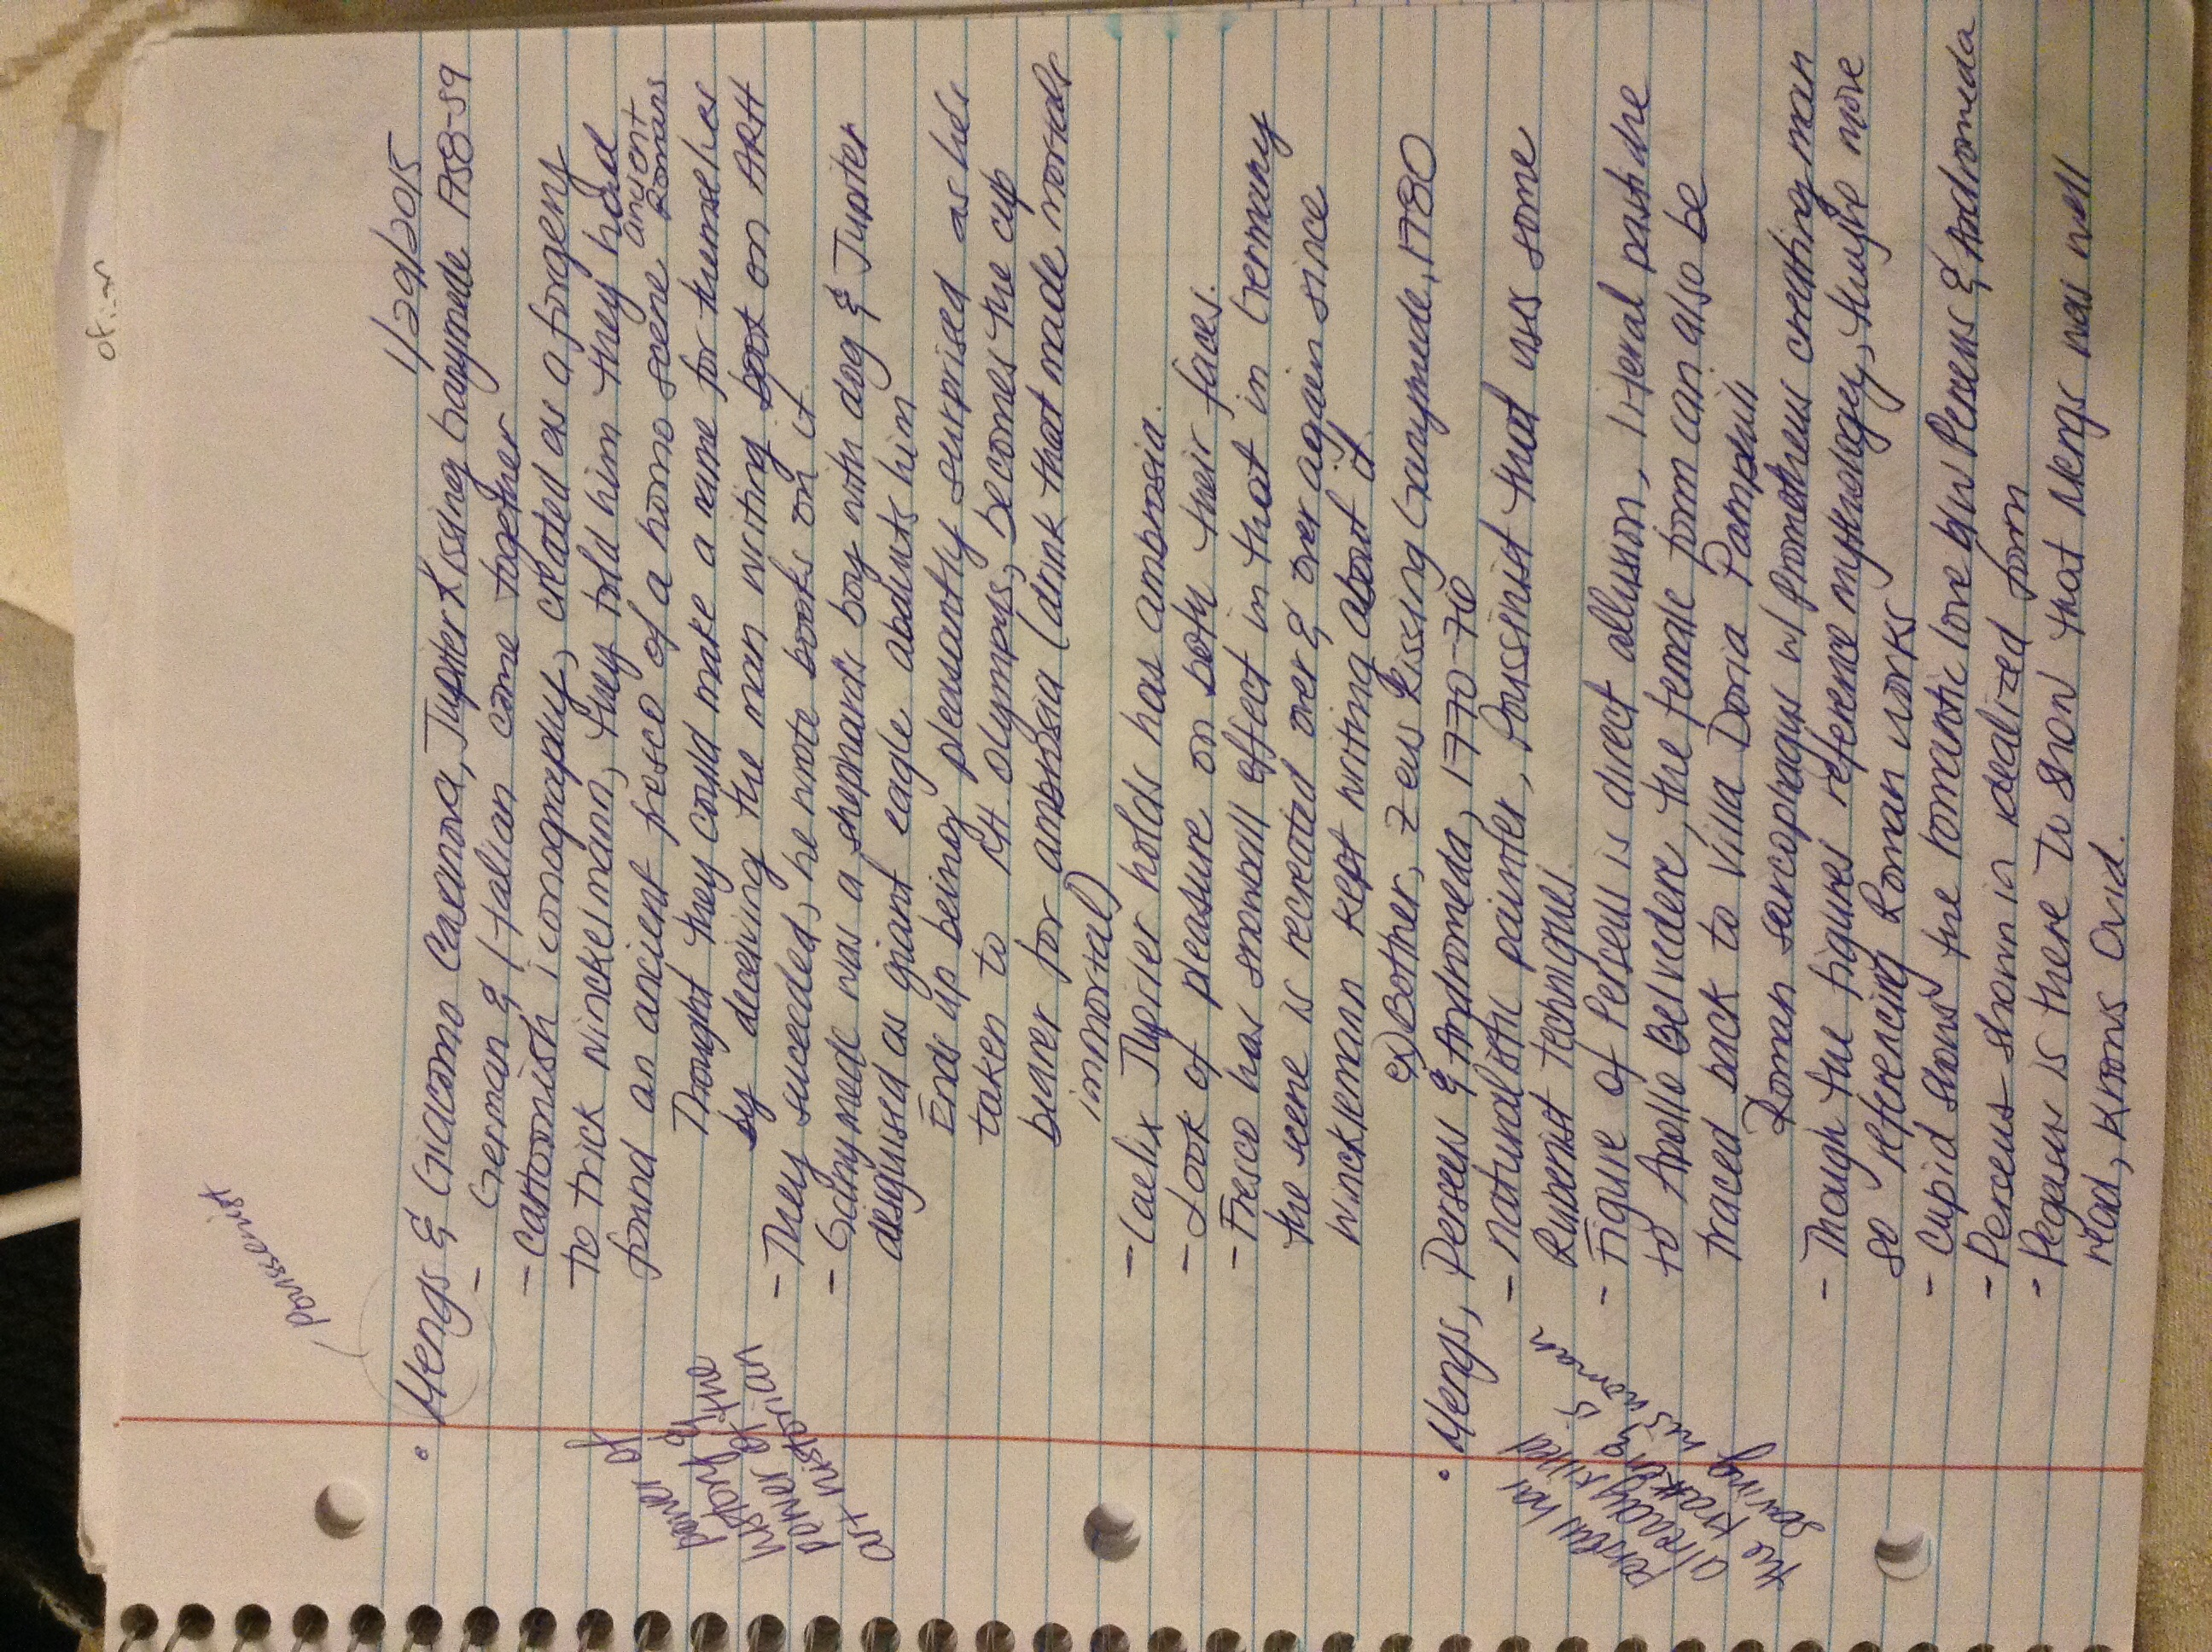 1/29/2015
Poussenist
• Mengs & Giacomo Casenova, Jupiter Kissing Ganymede 1758-59
- German & Italian came together
- Cartoonish iconography, created as a forgery
to trick Winckelmann, they told him they had
found an ancient fresco of a homo scene ancient Romans
Thought they could make a name for themselves
by deceiving the man writing book on ARH
- They suceeded, he wrote books on it.
- Ganymede was a shephards boy with dog & Jupiter
disguised as giant eagle abducts him
Ends up being pleasantly surprised as he's
taken to Mt. Olympus, becomes the cup
bearer for ambrosia (drink that made mortals
immortal)
power of
history &
the
power of an
art historian
- Caelix Jupiter holds has ambrosia.
- Look of pleasure on both their faces.
- Fresco has snowball effect in that in Germany
the scene is recreated over & over again since
Winckelmann kept writing about it.
ex) Bother, Zeus Kissing Ganymede, 1780
• Mengs, Perseus & Andromeda, 1770-76
- naturalistic painter, Poussinist that uses some
Rubenist techniques.
- Figure of Perseus is direct allusion, literal pastiche
to Apollo Belvedere, the female form can also be
traced back to Villa Doria Pamphili
Roman sarcophagus w/ Prometheus creating man
- Though the figures reference mythology, they're more
so referencing Roman works
- Cupid shows the romantic love b/w Perseus & Andromeda
- Perseus shown in idealized form
- Pegasus is there to show that Mengs was well
read, knows Ovid.
Perseus has
already killed
the Kraken &
is
saving his woman